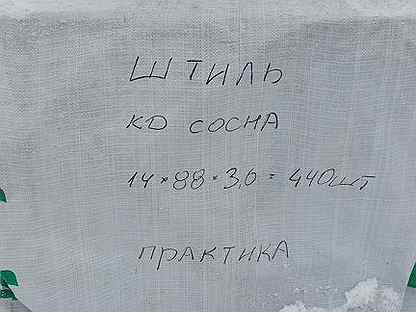 ШТИЛЬ
КД СОСНА
14×88×3,0=440ШТ
ПРАКТИКА